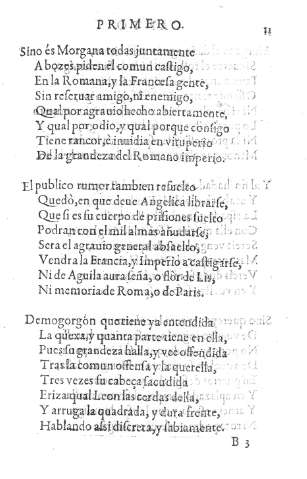 PRIMERO.
Sino és Morgana todas juntamente
A bozes piden el comun castigo,
En la Romana, y la Francesa gente,
Sin reseruar amigo, ni enemigo,
Qual por agrauio hecho abiertamente,
Y qual por odio, y qual porque consigo
Tiene rancor, è inuidia en vituperio
De la grandeza del Romano imperio.
El publico rumor tambien resuelto
Quedò, en que deue Angelica librarse,
Que si es su cuerpo de prisiones suelto
Podran con el mil almas añudarse,
Sera el agrauio general absuelto,
Vendra la Francia, y Imperio a castigarse,
Ni de Aguila aura seña, o flor de Lis,
Ni memoria de Roma, o de Paris.
Demogorgón que tiene ya entendida
La quexa, y quanta parte tiene en ella,
Pues su grandeza halla, y vee offendida
Tras la comun offensa y la querella,
Tres vezes su cabeça sacudida
Eriza qual Leon las cerdas della,
Y arruga la quadrada, y dura frente,
Hablando assi discreta, y sabiamente.
B 3